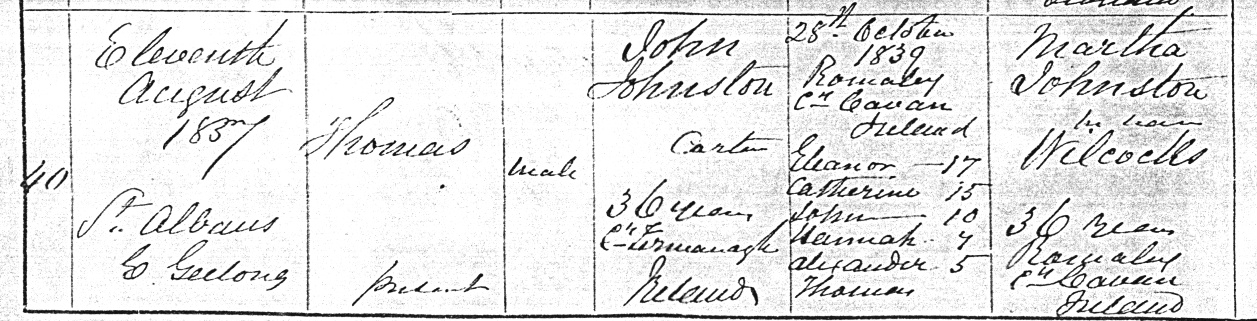 40
Eleventh
August
1857
St. Albans
E Geelong
Thomas
present
male
John
Johnston
Carter
36 years
Cy Fermanagh
Ireland
28th October
1839
Romaley
Cy Cavan
Ireland
Eleanor - 17
Catherine 15
John - 10
Hannah 7
Alexander 5
Thomas
Martha
Johnston
Wilcocks
36 years
Romaley
Cy Cavan
Ireland